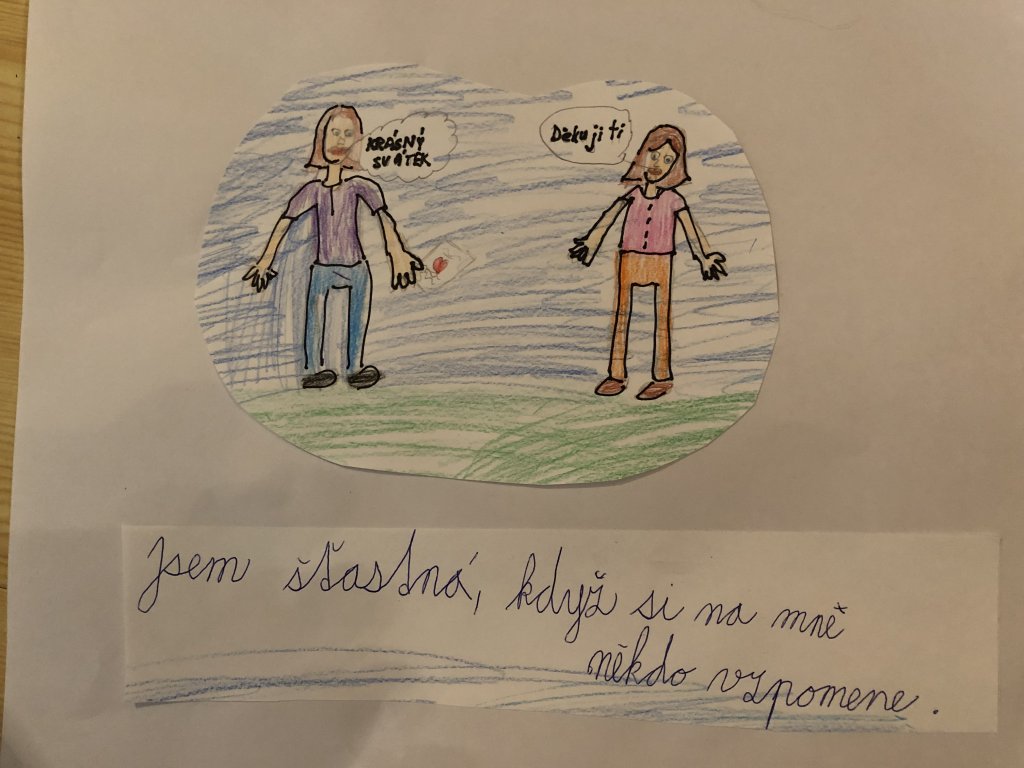 KRÁSNÝ
SVÁTEK
Děkuji ti
Jsem šťastná, když si na mně
někdo vzpomene.